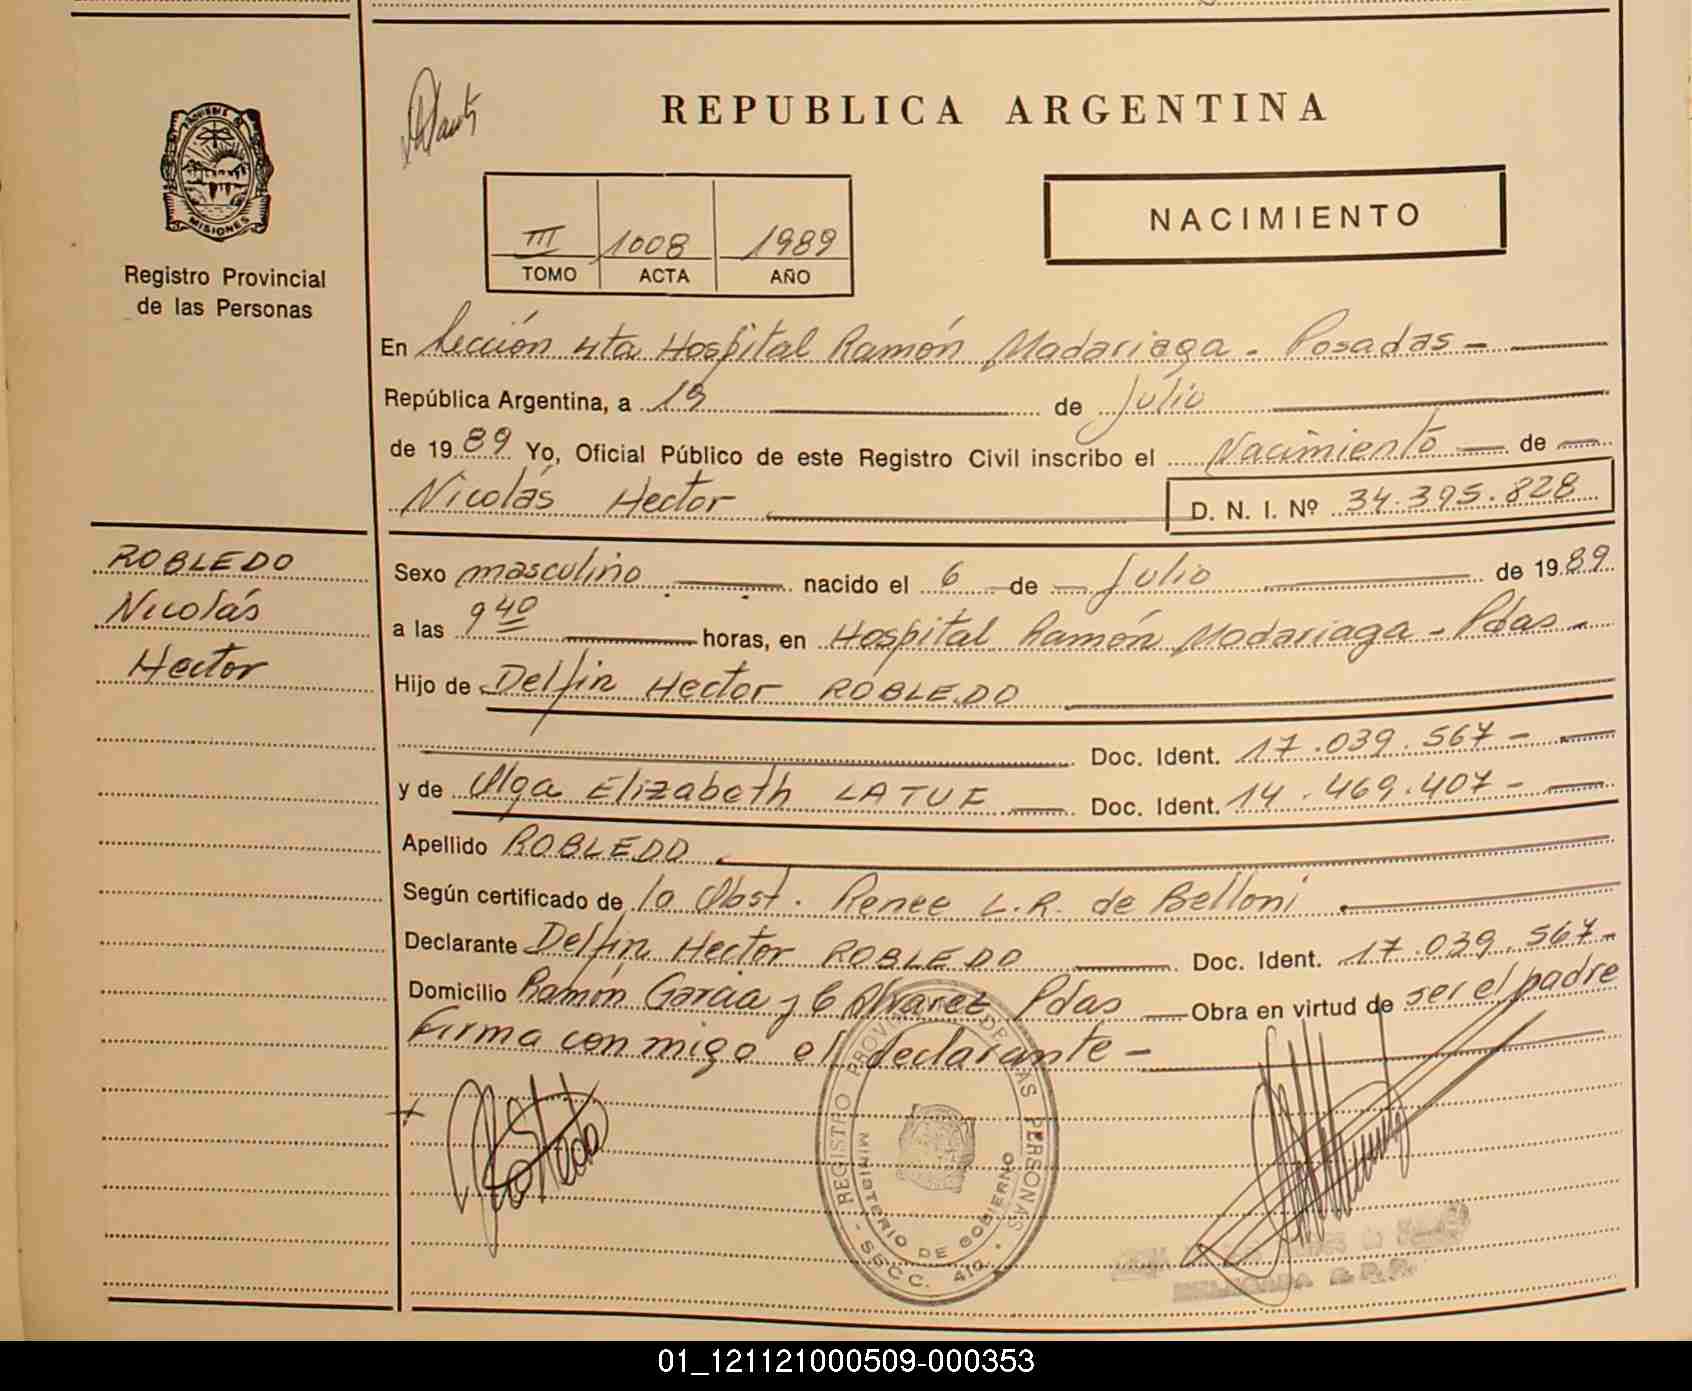 REPUBLICA ARGENTINA
PROVINCIA DE
MISIONES
Registro Provincial
de las Personas
III 1008 1989
TOMO ACTA AÑO
NACIMIENTO
En Sección 4ta Hospital Ramón Madariaga - Posadas -
República Argentina, a 19 de Julio
de 1989 Yo, Oficial Público de este Registro Civil inscribo el Nacimiento de
Nicolás Hector D. N. I. Nº 34.395.828
ROBLEDO
Nicolás
Hector
Sexo masculino nacido el 6 de Julio de 1989
a las 9 40 horas, en Hospital Ramón Madariaga - Pdas -
Hijo de Delfin Hector ROBLEDO
Doc. Ident. 17.039.567 -
y de Olga Elizabeth LATUE Doc. Ident. 14.469.407 -
Apellido ROBLEDO
Según certificado de la Obst. Renee L.R. de Belloni
Declarante Delfin Hector ROBLEDO Doc. Ident. 17.039.567 -
Domicilio Ramón Garcia y C Alvarez Pdas Obra en virtud de ser el padre
Firma conmigo el declarante -
REGISTRO PROVINCIAL DE LAS PERSONAS
MINISTERIO DE GOBIERNO
- SECC. 410 -
01_121121000509-000353